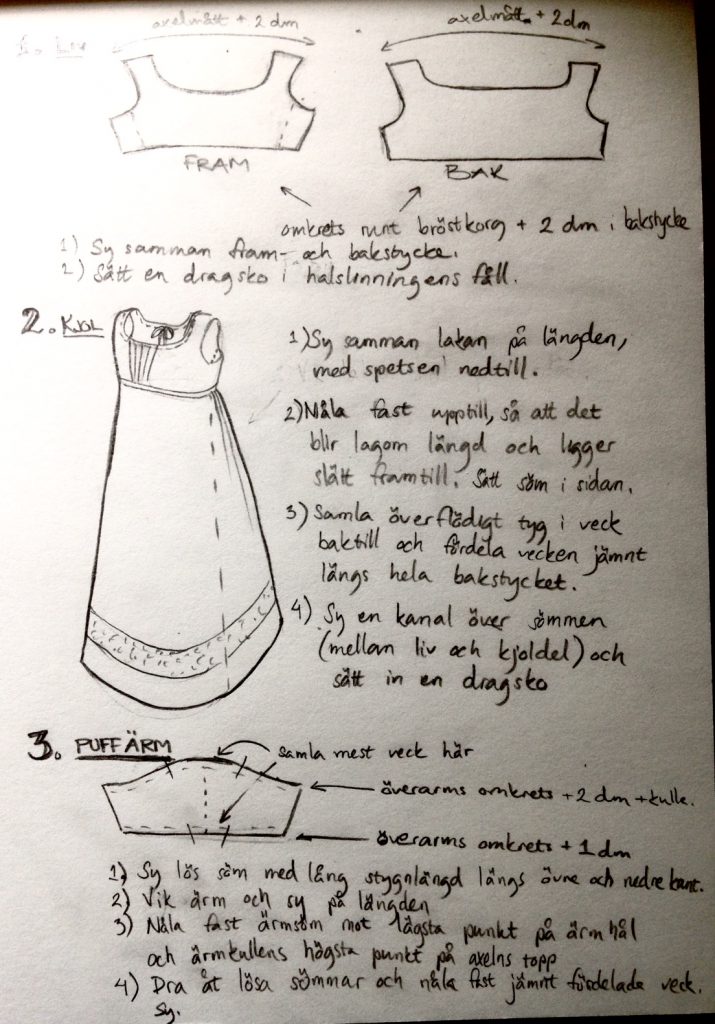 axelmått + 2 dm
axelmått + 2dm
1. LIV
FRAM
BAK
omkrets runt bröstkorg + 2 dm i bakstycke
1) Sy samman fram- och bakstycke.
2) Sätt en dragsko i halslinningens fåll.
2. KJOL
1) Sy samman lakan på längden,
med spetsen nedtill.
2) Nåla fast upptill, så att det
blir lagom längd och ligger
slätt framtill. Sätt söm i sidan.
3) Samla överflödigt tyg i veck
baktill och fördela vecken jämnt
längs hela bakstycket.
4) Sy en kanal över sömmen
(mellan liv och kjoldel) och
sätt in en dragsko
3. PUFFÄRM
samla mest veck här
överarms omkrets + 2 dm + kulle.
överarms omkrets + 1 dm
1) Sy lös söm med lång stygnlängd längs övre och nedre kant.
2) Vik ärm och sy på längden
3) Nåla fast ärmsöm mot lägsta punkt på ärmhål
och ärmkullens högsta punkt på axelns topp
4) Dra åt lösa sömmar och nåla fast jämnt fördelade veck.
Sy.